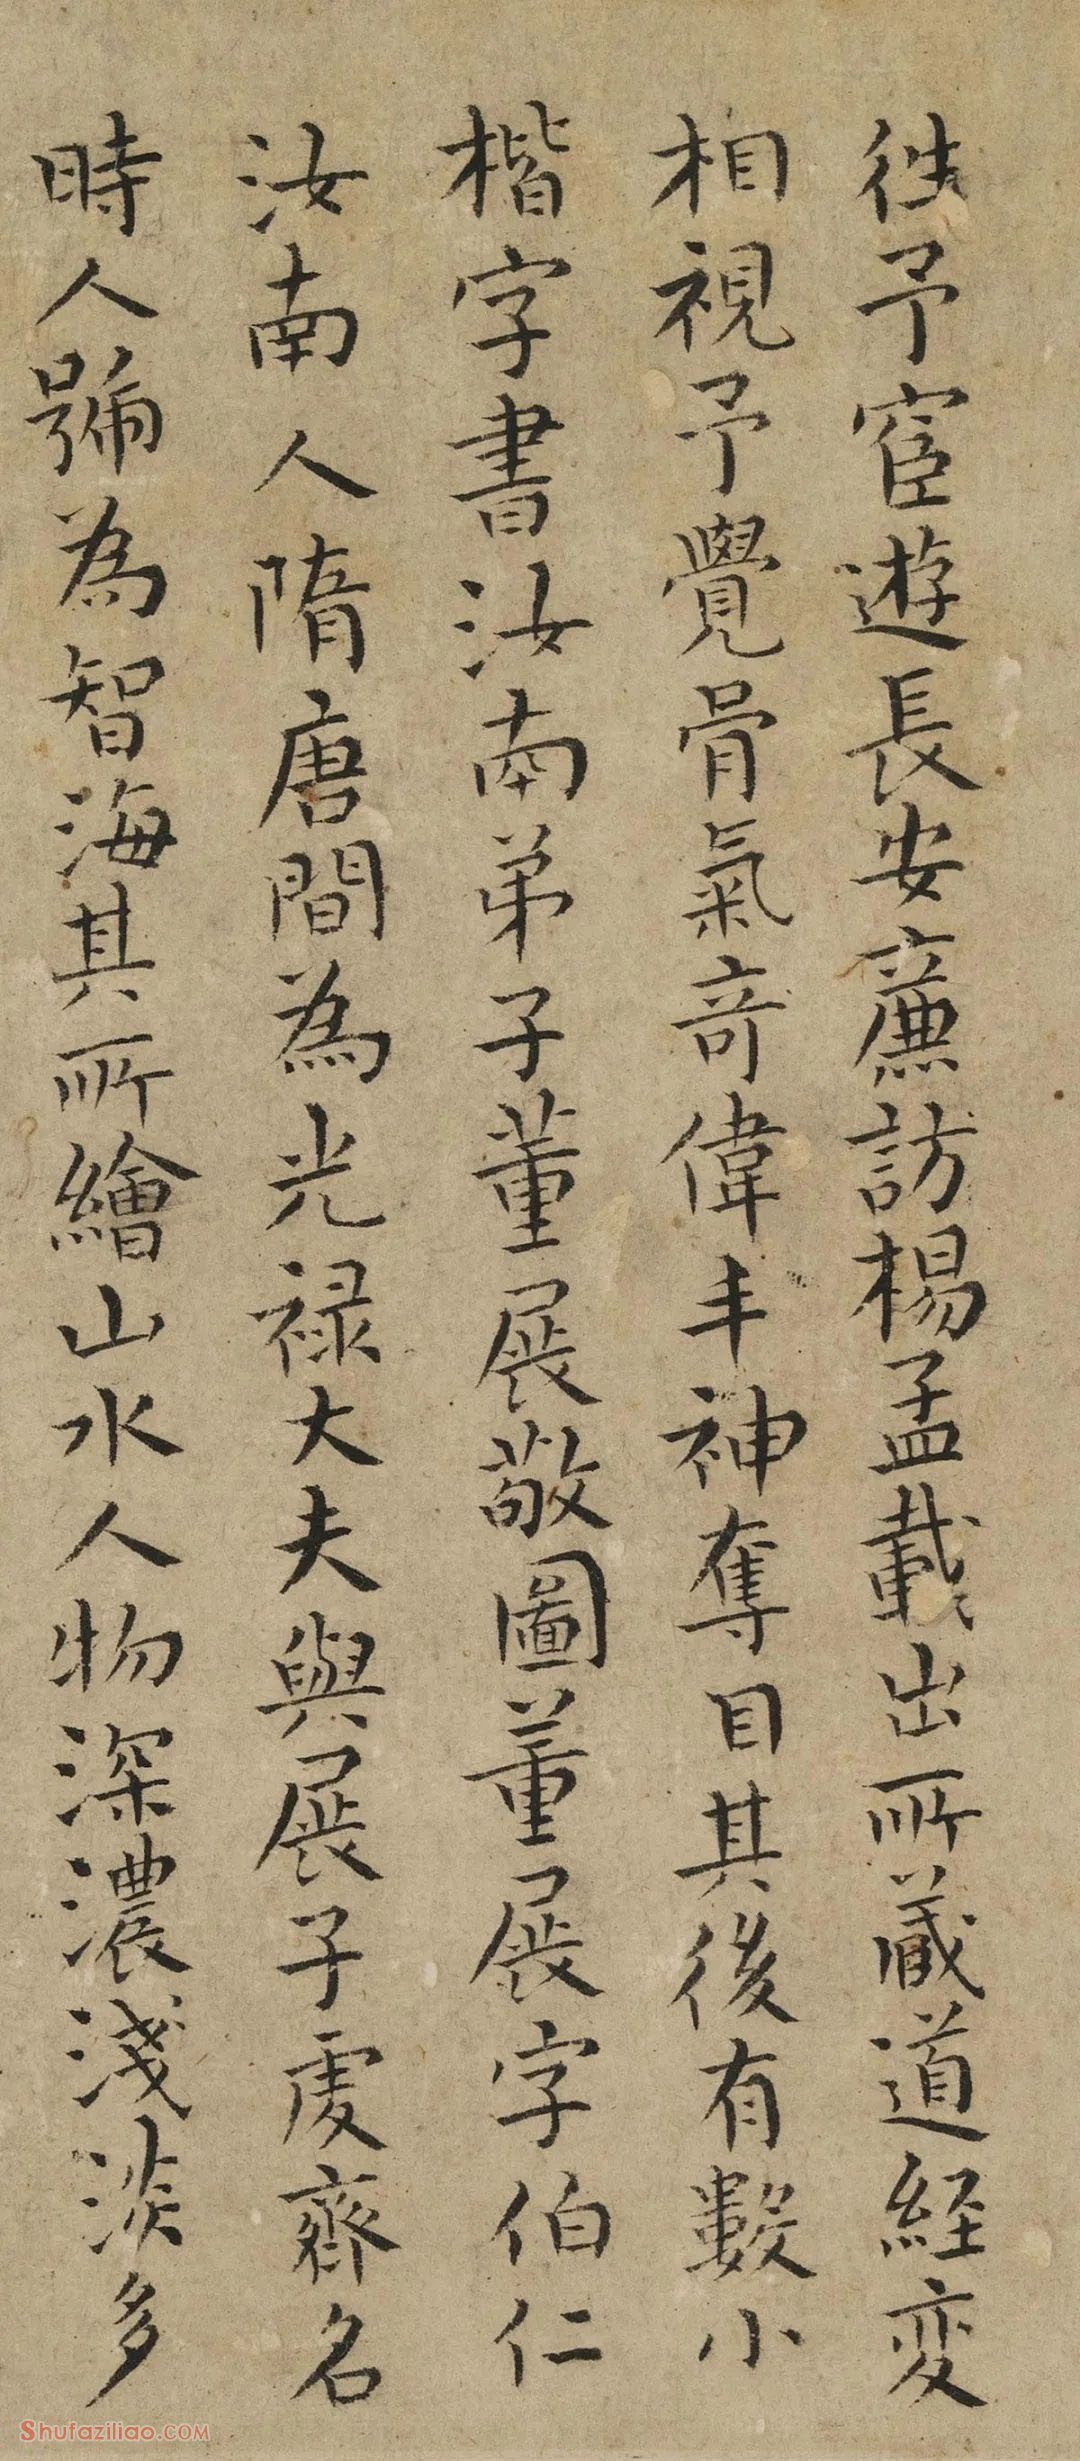 徃予宦遊長安蕭訪楊孟載出所蔵道経変
相視予覺骨氣竒偉丰神奪目其後有數小
楷字書汝南弟子董展敬圖董展字伯仁
汝南人隋唐間為光禄大夫與展子虔齊名
時人號為智海其所繪山水人物深濃淺淡多
Shufaziliao.COM